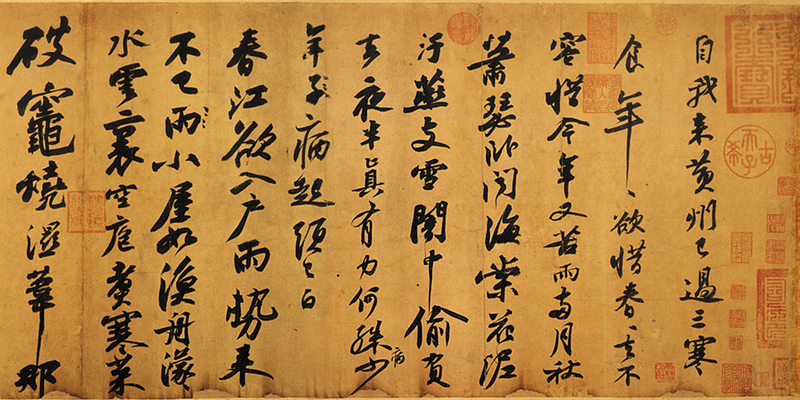 自我來黃州已過三寒
食年〻欲惜春〻去不
容惜今年又苦雨兩月秋
蕭瑟臥聞海棠花泥
汙燕支雪闇中偷負
去夜半真有力何殊病少
年子病起頭已白
春江欲入戶雨勢來
不已雨小屋如漁舟濛〻
水雲裏空庖煮寒菜
破竈燒溼葦那
古希天子